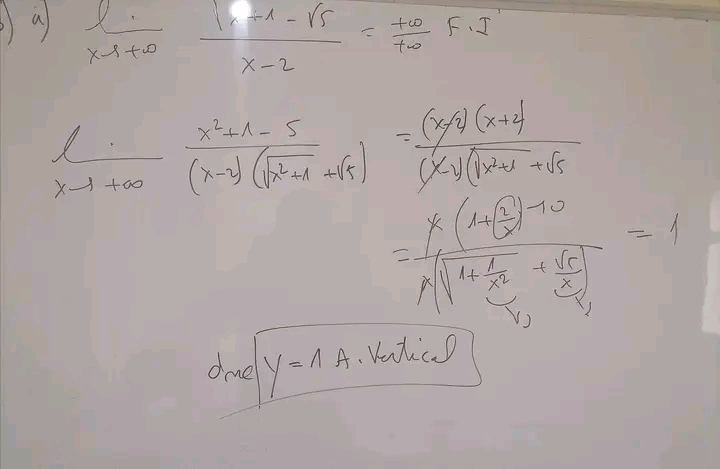 b) a) lim x→+∞ (√x+1 - √5)/(x-2) = +∞/+∞ F.I
lim x→+∞ (x²+1-5)/((x-2)(√x²+1 +√5)) = (x-2)(x+2)/((x-2)(√x²+1 +√5)
= x(1+2/x)→0/x(√1+1/x² + √5/x) = 1
donc y=1 A.Vertical